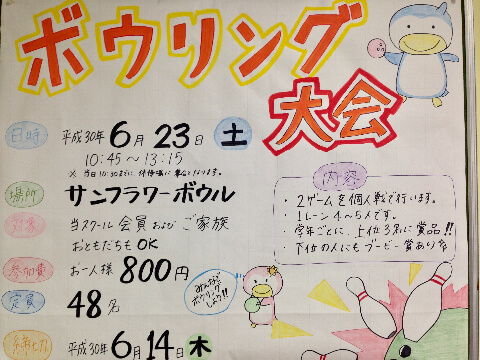 ボウリング
大会
日時 平成30年 6月 23日 土
10:45～13:15
場所 サンフラワーボウル
対象 当スクール会員および ご家族
おともだちも OK
参加費 お一人様 800円
定員 48名
締切 平成30年 6月 14日 木
内容
・2ゲームを個人戦で行います。
・1レーン 4～5人です。
・学年ごとに、上位3名に賞品!!
・下位の人にもブービー賞あり
みんなで
ボウリング
しよう!!